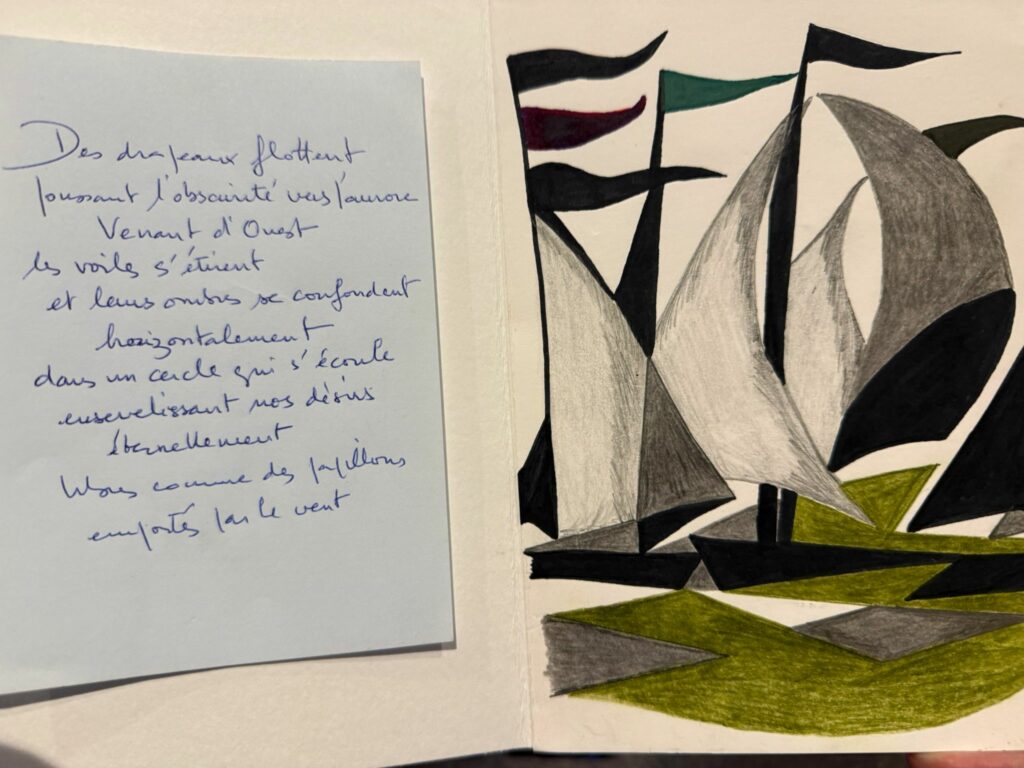 Des drapeaux flottent
poussant l'obscurité vers l'aurore
Venant d'Ouest
les voiles s'étirent
et leurs ombres se confondent
horizontalement
dans un cercle qui s'écoule
ensevelissant nos désirs
éternellement
libres comme des papillons
emportés par le vent